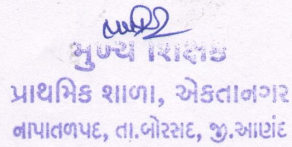 મુખ્ય શિક્ષક
પ્રાથમિક શાળા, એકતાનગર
નાપાતળપદ, તા.બોરસદ, જી.આણંદ